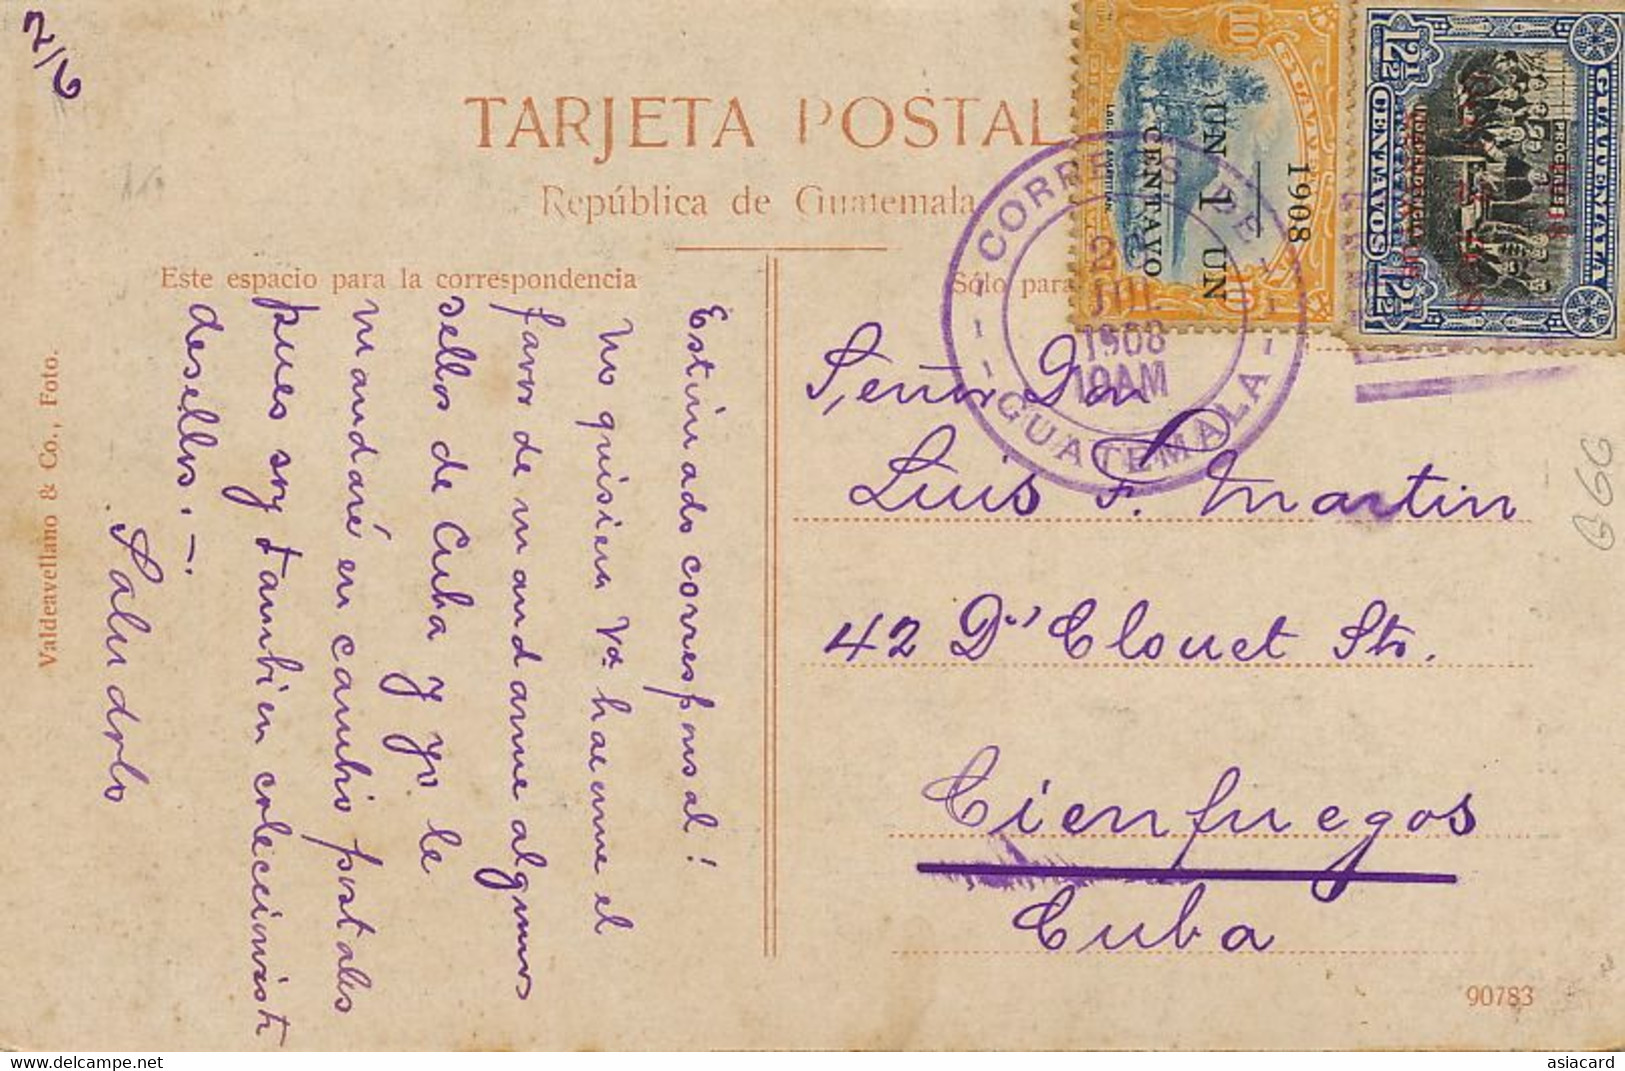 2/6
TARJETA POSTAL
República de Guatemala
Este espacio para la correspondencia
Sólo para
Valdeavellano & Co., Foto.
Estimado corresponsal!
No quisiera Vd. hacerme el
favor de mandarme algunos
sellos de Cuba y yo le
mandaré en cambio postales
pues soy tambien coleccionista
de sellos. —.
Saludolo
Señor Don
Luis F. Martin
42 D'Clouet Str.
Cienfuegos
Cuba
10
1908
UN 1 UN
CENTAVO
10
GUATEMALA
12½ CENTAVOS 12½
CORREOS DE
GUATEMALA
JUL
1908
10AM
90783
www.delcampe.net
asiacard